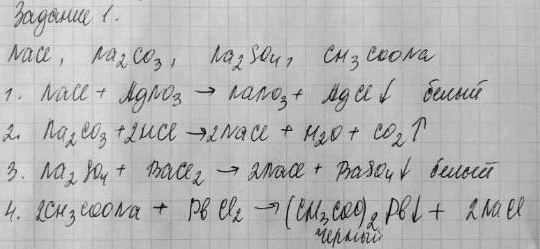 Задание 1.
NaCl, Na₂CO₃, Na₂SO₄, CH₃COONa
1. NaCl + AgNO₃ → NaNO₃ + AgCl↓ белый
2. Na₂CO₃ + 2HCl → 2NaCl + H₂O + CO₂↑
3. Na₂SO₄ + BaCl₂ → 2NaCl + BaSO₄↓ белый
4. 2CH₃COONa + PbCl₂ → (CH₃COO)₂Pb↓ + 2NaCl
черный